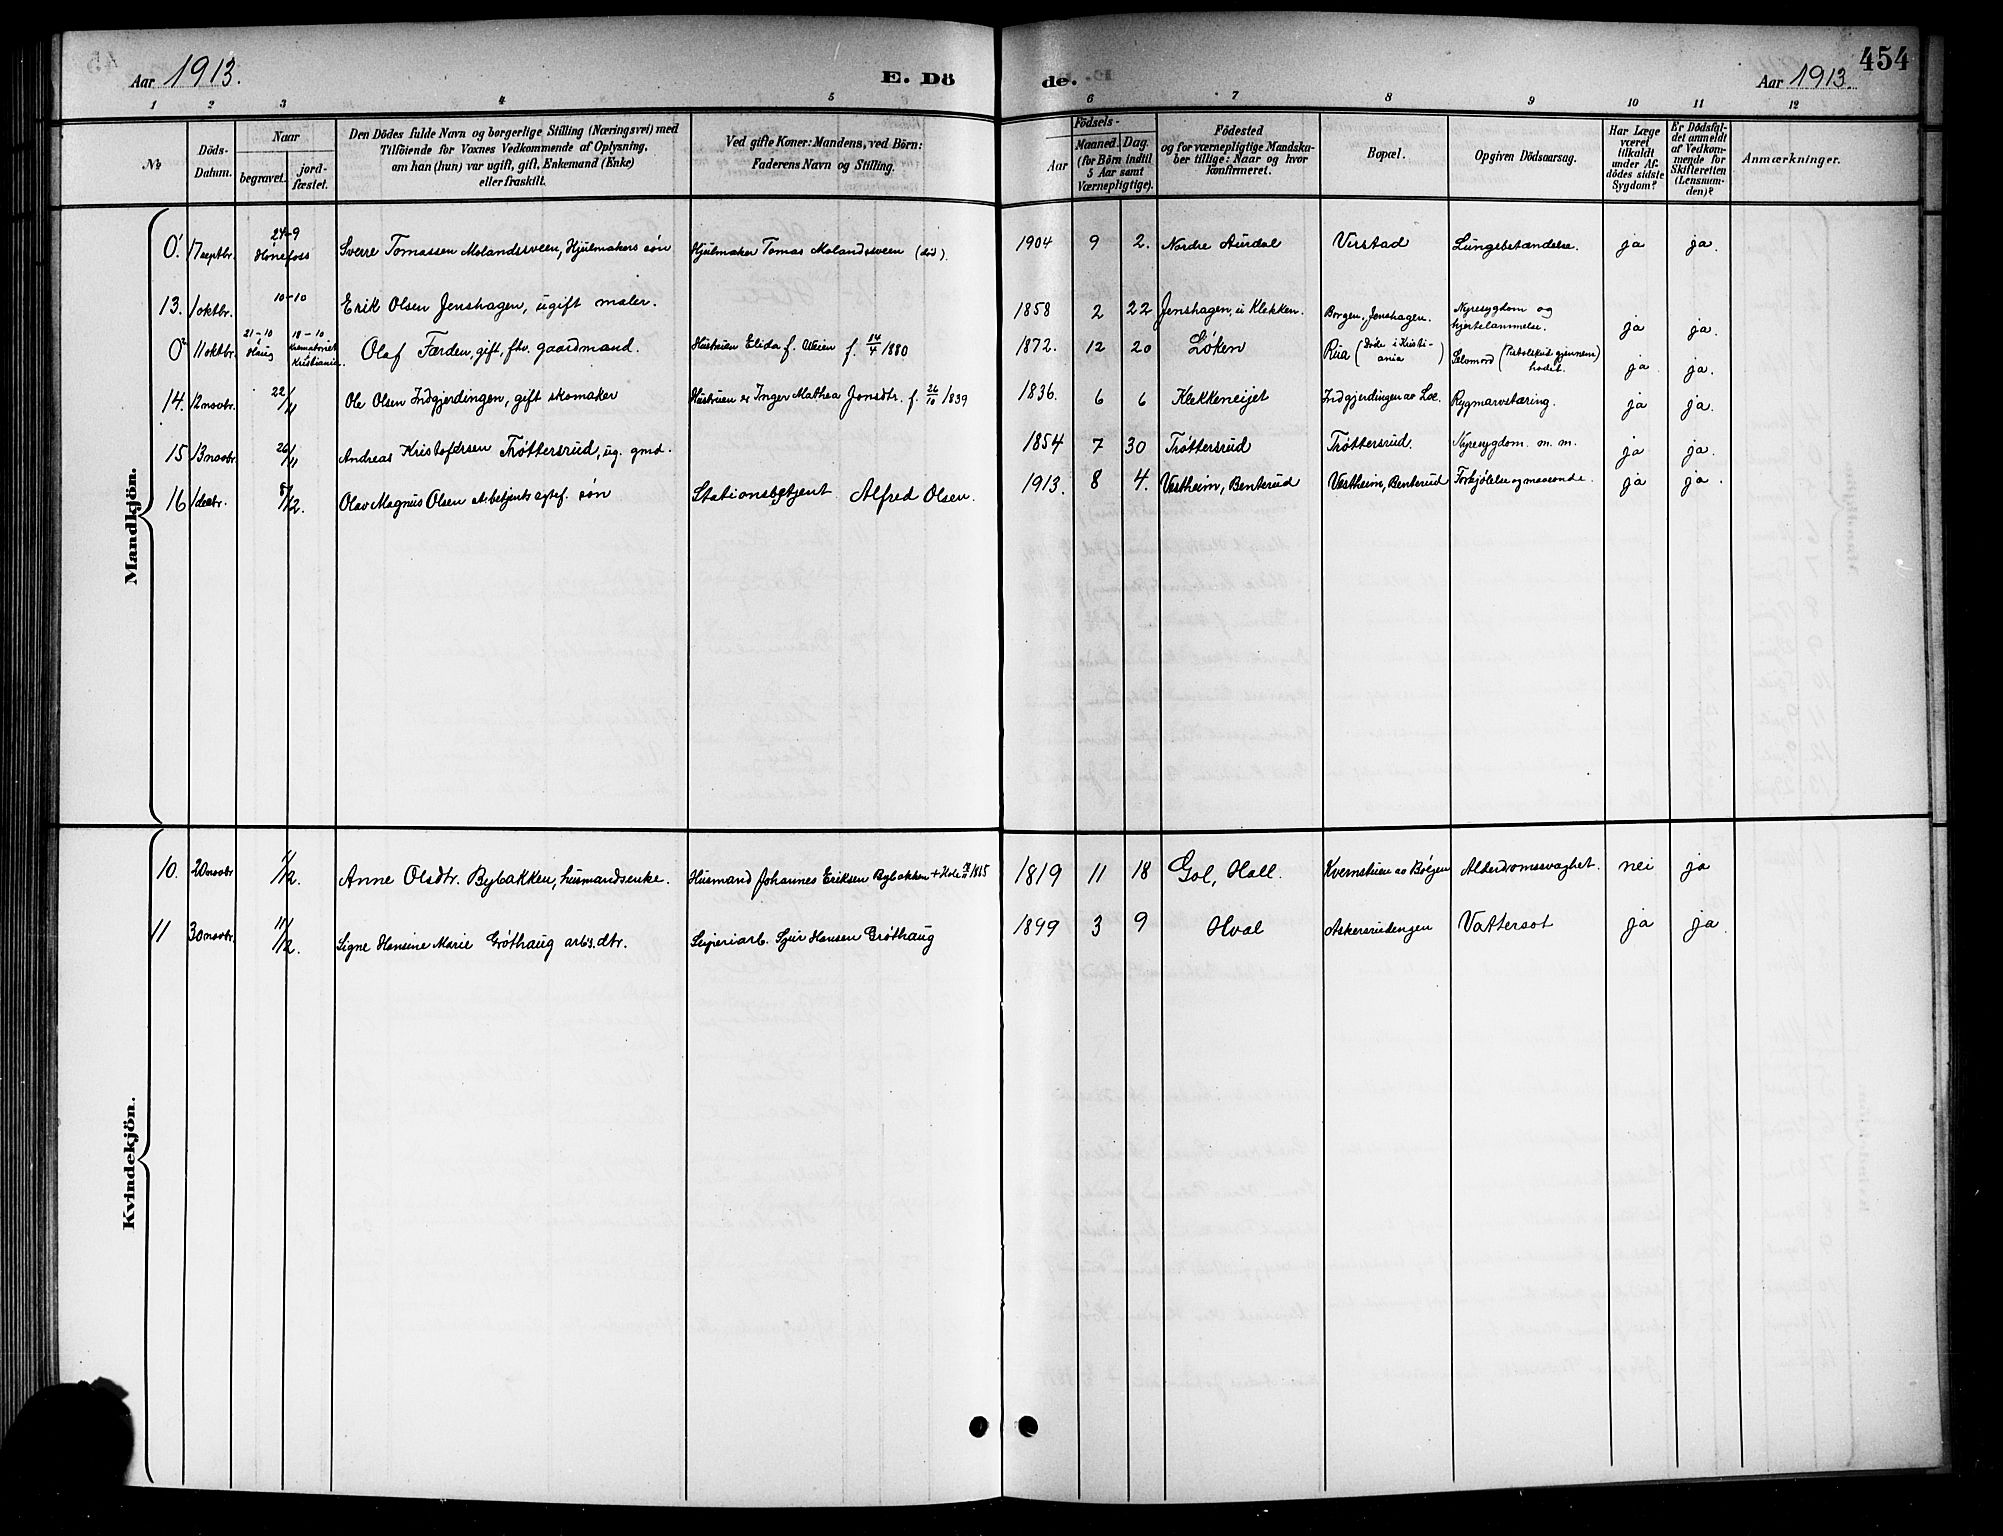 Aar 1913.
E. Dö
de.
Aar 1913.
454
1 2 3 4 5 6 7 8 9 10 11 12
№
Döds-
Datum.
Naar
begravet.
jord-
fæstet.
Den Dödes fulde Navn og borgerlige Stilling (Næringsvei) med
Tilföiende for Voxnes Vedkommende af Oplysning,
om han (hun) var ugift, gift, Enkemand (Enke)
eller fraskilt.
Ved gifte Koner: Mandens, ved Börn:
Faderens Navn og Stilling.
Födsels-
Aar
Maaned. Dag.
(for Börn indtil
5 Aar samt
Værnepligtige).
Födested
og for værnepligtige Mandska-
ber tillige: Naar og hvor
konfirmeret.
Bopæl.
Opgiven Dödsaarsag.
Har Læge
været
tilkaldt
under Af-
dödes sidste
Sygdom?
Er Dödsfal-
det anmeldt
af Vedkom-
mende for
Skifteretten
(Lensman-
den)?
Anmærkninger.
Mandkjön.
0¹. 17 septbr. 24-9 Hönefoss Sverre Tomassen Molandsveen, Hjulmakers sön Hjulmaker Tomas Molandsveen (död). 1904 9 2. Nordre Aurdal Virstad Lungebetændelse. ja ja.
13. 1 oktbr. 10-10 Erik Olsen Jenshagen, ugift maler. 1858 2 22 Jenshagen, u Klekken. Borgen, Jenshagen. Nyresygdom og
hjertelammelse. ja ja.
0² 11 oktbr. 21-10 Haug 18-10 Krematoriet Kristiania. Olaf Færden, gift, fhv. gaardmand. Hustruen Elida f. Veien f. 14/4 1880 1872. 12 20 Löken Riia (Döde i Kristi-
ania) Selvmord (Pistolskud gjennem
hodet.) ja ja.
14. 12 novbr. 22/11 Ole Olsen Indgjerdingen, gift skomaker Hustruen er Inger Mathea Jonsdtr. f. 26/10 1839 1836. 6 6 Klekkeneijet Indgjerdingen av Loe. Rygmarvstæring. ja ja.
15 13 novbr. 26/11 Andreas Kristofersen Tröttersrud, ug. gmd. 1854 7 30 Tröttersrud Tröttersrud. Nyresygdom. m. m. ja ja.
16 1 decbr. 8/12. Olav Magnus Olsen st.betjents egtef. sön Stationsbetjent Alfred Olsen. 1913. 8 4. Vestheim, Benterud Vestheim, Benterud Forkjölelse og maveonde. ja ja.
Kvindekjön.
10. 20 novbr. 1/12. Anne Olsdtr. Bybakken, husmandsenke. Husmand Johannes Eriksen Bybakken + Hole 1885 1819 11 18 Gol, Hall. Kvernstuen av Bölgen Alderdomssvaghet. nei ja
11 30 novbr. 11/12. Signe Hansine Marie Gröthaug arb's. dtr. Sliperiarb. Sjur Hansen Gröthaug 1899 3 9 Hval Askersrudengen Vattersot ja ja.